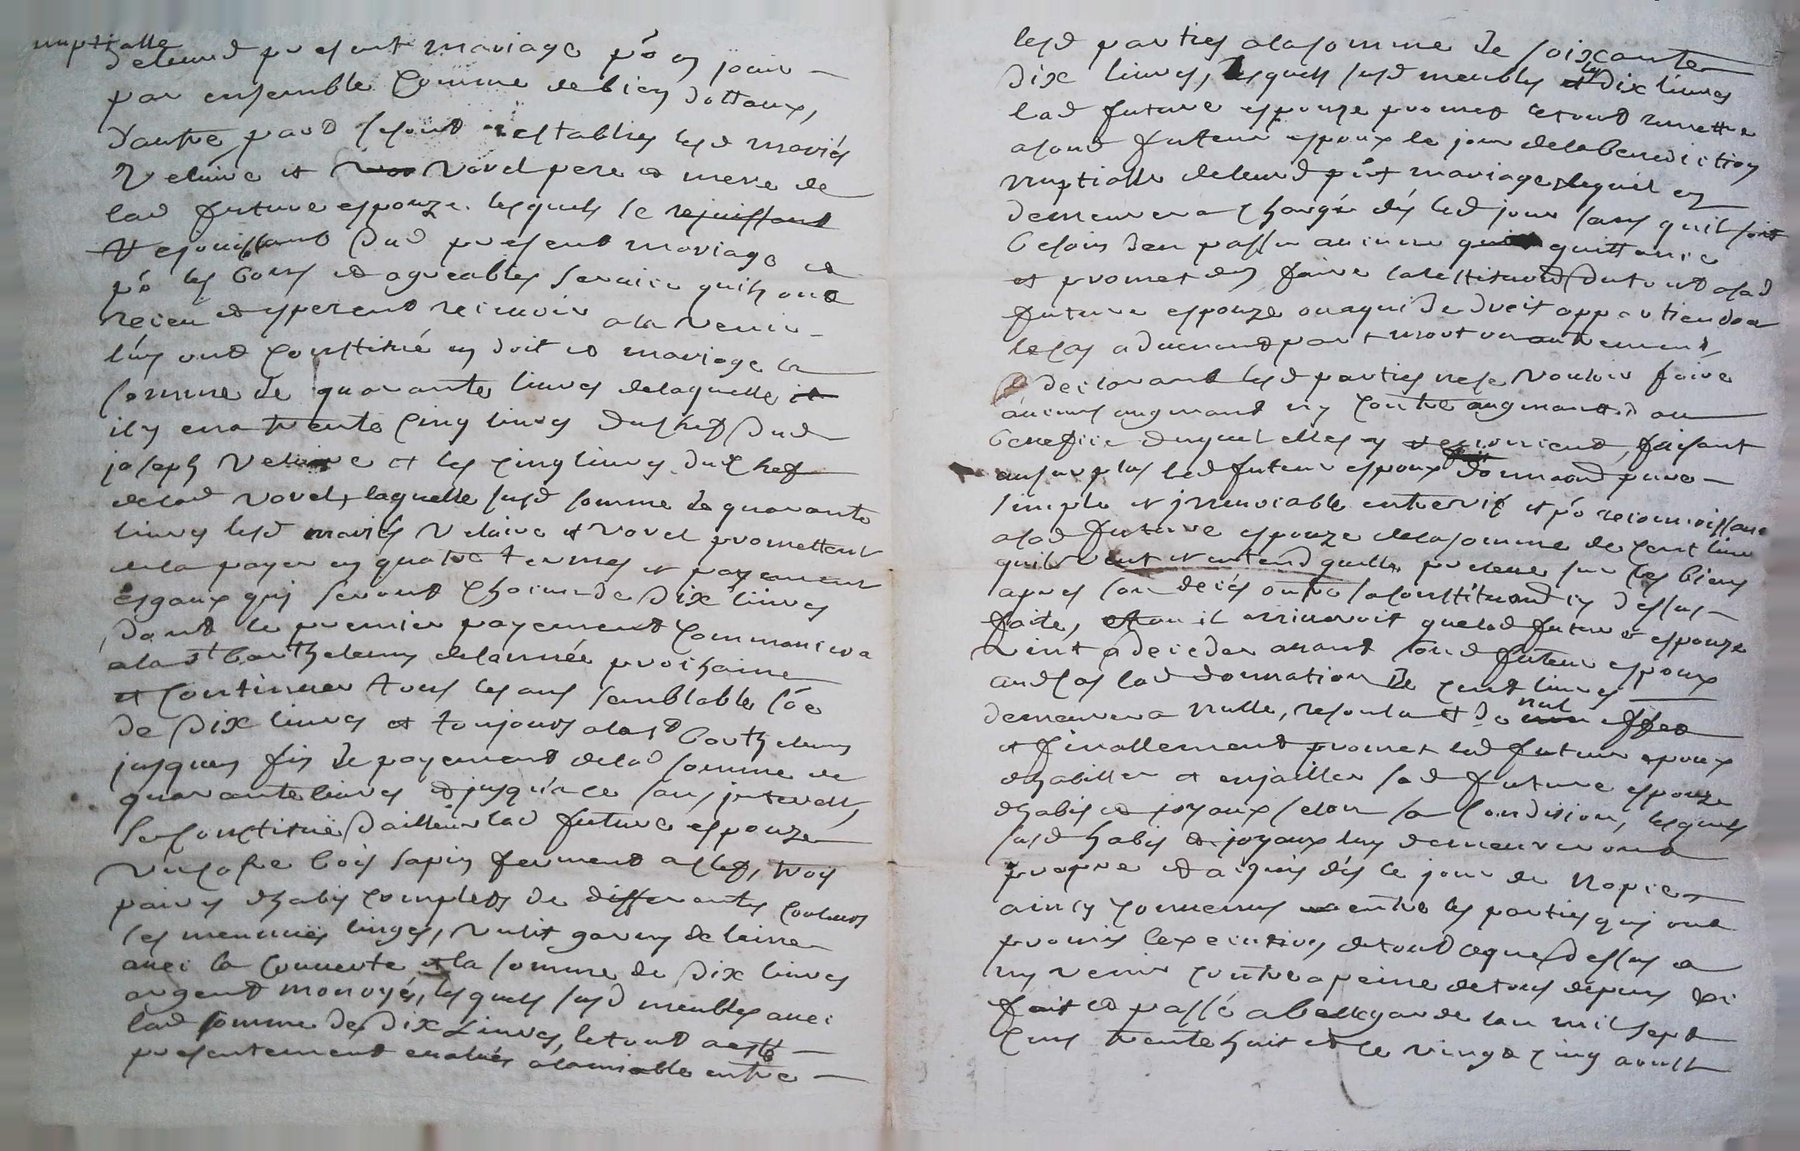 nuptialle
deleurd present mariage po en jouir
par ensemble Comme de bien dottaux,
dautre pard se sont establies lesd mariés
Velaive et Vovel pere et mere de
lad future espouze lesquels se rejouissant
Rejouissant dud present mariage et
po les bons et agreables service quils ont
receu et esperent recevoir a la venir
luy ont Constitué en doit et mariage la
somme de quarante livres de laquelle
il y en a trente Cinq livres du chef dud
joseph Velaive et les cinq livres du Chef
de lad Vovel, laquelle susd somme de quarante
livres lesd mariés Velaive et Vovel promettent
de la payer en quatre termes et payement
esgaux qui seront Chacun de Dix livres
dont le premier payement Commancera
a la st barthelemy de lannée prochaine
et Continuer tous les ans semblable so e
de Dix livres et toujours a la st barthelemy
jusques fin de payement de lad somme de
quarante livres et jusques a ce sans interest,
se Constitue dailleur lad future espouze
un cofre bois sapin fermend a clef, trois
paires dhabis Complets de differents Couleurs
ses menues linges, un lit garny de laine
avec la Couverte et la somme de Dix livres
argent monoyé, lesquels susd meubles avec
lad somme de Dix Livres, le tout a esté
presentement evalués a lamiable entre
lesd parties a la somme de soixante
dix livres, Lesquels susd meubles et les dix livres
lad future espouze promet le tout remettre
a sond futeur espoux le jour de la benediction
nuptialle de leurd pnt mariage, lequel en
demeurera Chargé dés led jour sans quil soit
besoin den passer aucune quittance
et promet den faire la restitution du tout a lad
future espouze ou a qui de droit appartiendra
le cas advenand par mort ou autrement,
declarant lesd parties ne se vouloir faire
aucuns augmand ny Contre augmand, au
benefice duquel elles y renoncient, faisant
au surplus led futeur espoux donnaon pure
simple et jrrevocable entre vif et po reconnoissance
a lad future espouze de la somme de Cent livres
quil veut et entend quelle preleve sur ses biens
apres son decés outre la Constitution cy dessus
faite, et ou il arriveroit que lad future espouze
vint a deceder avant sond futeur espoux
aud cas lad donnation de Cent livres
demeurera nulle, resolue et de nul effet
et finallement promet led futeur epoux
dhabiller et enjoailler sad future espouze
dhabis et joyaux selon sa Condision, lesquels
susd habis et joyaux luy demeureront
propre et acquis dés le jour de Nopces
aincy Convenus entre les parties qui ont
promis lexecution de tout ce que dessus et
ny venir Contre a peine de tous depens
fait et passé a bellegarde lan mil sept
Cens trente huit et le vingt Cinq aoust